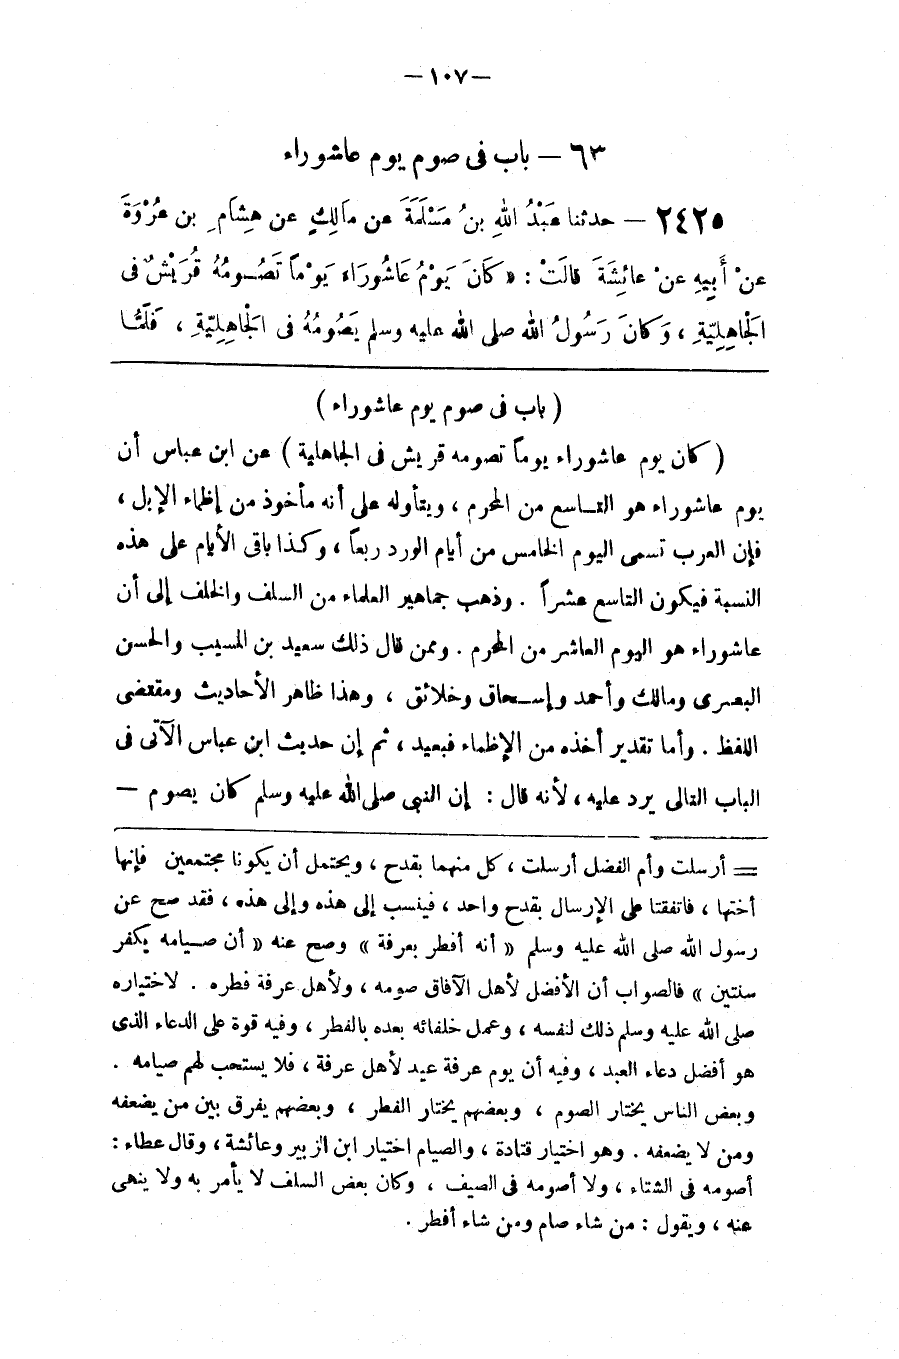 — ١٠٧ —
٦٣ — باب فى صوم يوم عاشوراء
٢٤٢٥ — حدثنا عَبْدُ اللهِ بنُ مَسْلَمَةَ عن مَالِكٍ عن هِشَامِ بن عُرْوَةَ
عنْ أَبِيهِ عنْ عائِشَةَ قالَتْ : « كَانَ يَوْمُ عَاشُورَاء يَوْماً تَصُومُهُ قُرَيْشٌ فى
الْجَاهِلِيَّةِ ، وَكَانَ رَسُولُ الله صلى الله عليه وسلم يَصُومُهُ فى الْجَاهِلِيَّةِ ، فَلَمَّا
( باب فى صوم يوم عاشوراء )
( كان يوم عاشوراء يوماً تصومه قريش فى الجاهلية ) عن ابن عباس أن
يوم عاشوراء هو التاسع من المحرم ، ويتأوله على أنه مأخوذ من إظماء الإبل ،
فإن العرب تسمى اليوم الخامس من أيام الورد ربعاً ، وكذا باقى الأيام على هذه
النسبة فيكون التاسع عشراً . وذهب جماهير العلماء من السلف والخلف إلى أن
عاشوراء هو اليوم العاشر من المحرم . وممن قال ذلك سعيد بن المسيب والحسن
البصرى ومالك وأحمد وإسحاق وخلائق ، وهذا ظاهر الأحاديث ومقتضى
اللفظ . وأما تقدير أخذه من الإظماء فبعيد ، ثم إن حديث ابن عباس الآتى فى
الباب التالى يرد عليه ، لأنه قال : إن النبى صلى الله عليه وسلم كان يصوم —
= أرسلت وأم الفضل أرسلت ، كل منهما بقدح ، ويحتمل أن يكونا مجتمعين فإنها
أختها ، فاتفقتا على الإرسال بقدح واحد ، فينسب إلى هذه وإلى هذه ، فقد صح عن
رسول الله صلى الله عليه وسلم « أنه أفطر بعرفة » وصح عنه « أن صيامه يكفر
سنتين » فالصواب أن الأفضل لأهل الآفاق صومه ، ولأهل عرفة فطره . لاختياره
صلى الله عليه وسلم ذلك لنفسه ، وعمل خلفائه بعده بالفطر ، وفيه قوة على الدعاء الذى
هو أفضل دعاء العبد ، وفيه أن يوم عرفة عيد لأهل عرفة ، فلا يستحب لهم صيامه .
وبعض الناس يختار الصوم ، وبعضهم يختار الفطر ، وبعضهم يفرق بين من يضعفه
ومن لا يضعفه . وهو اختيار قتادة ، والصيام اختيار ابن الزبير وعائشة ، وقال عطاء :
أصومه فى الشتاء ، ولا أصومه فى الصيف ، وكان بعض السلف لا يأمر به ولا ينهى
عنه ، ويقول : من شاء صام ومن شاء أفطر .